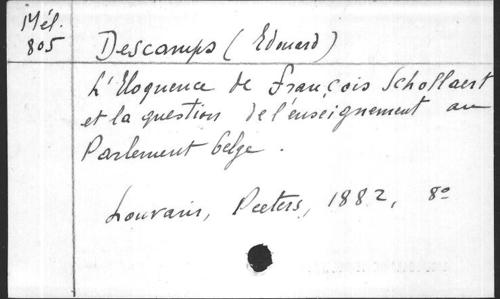 Mél.
805
Descamps (Edouard)
L'Eloquence de François Schollaert
et la question de l'enseignement au
Parlement belge.
Louvain, Peeters, 1882, 8º